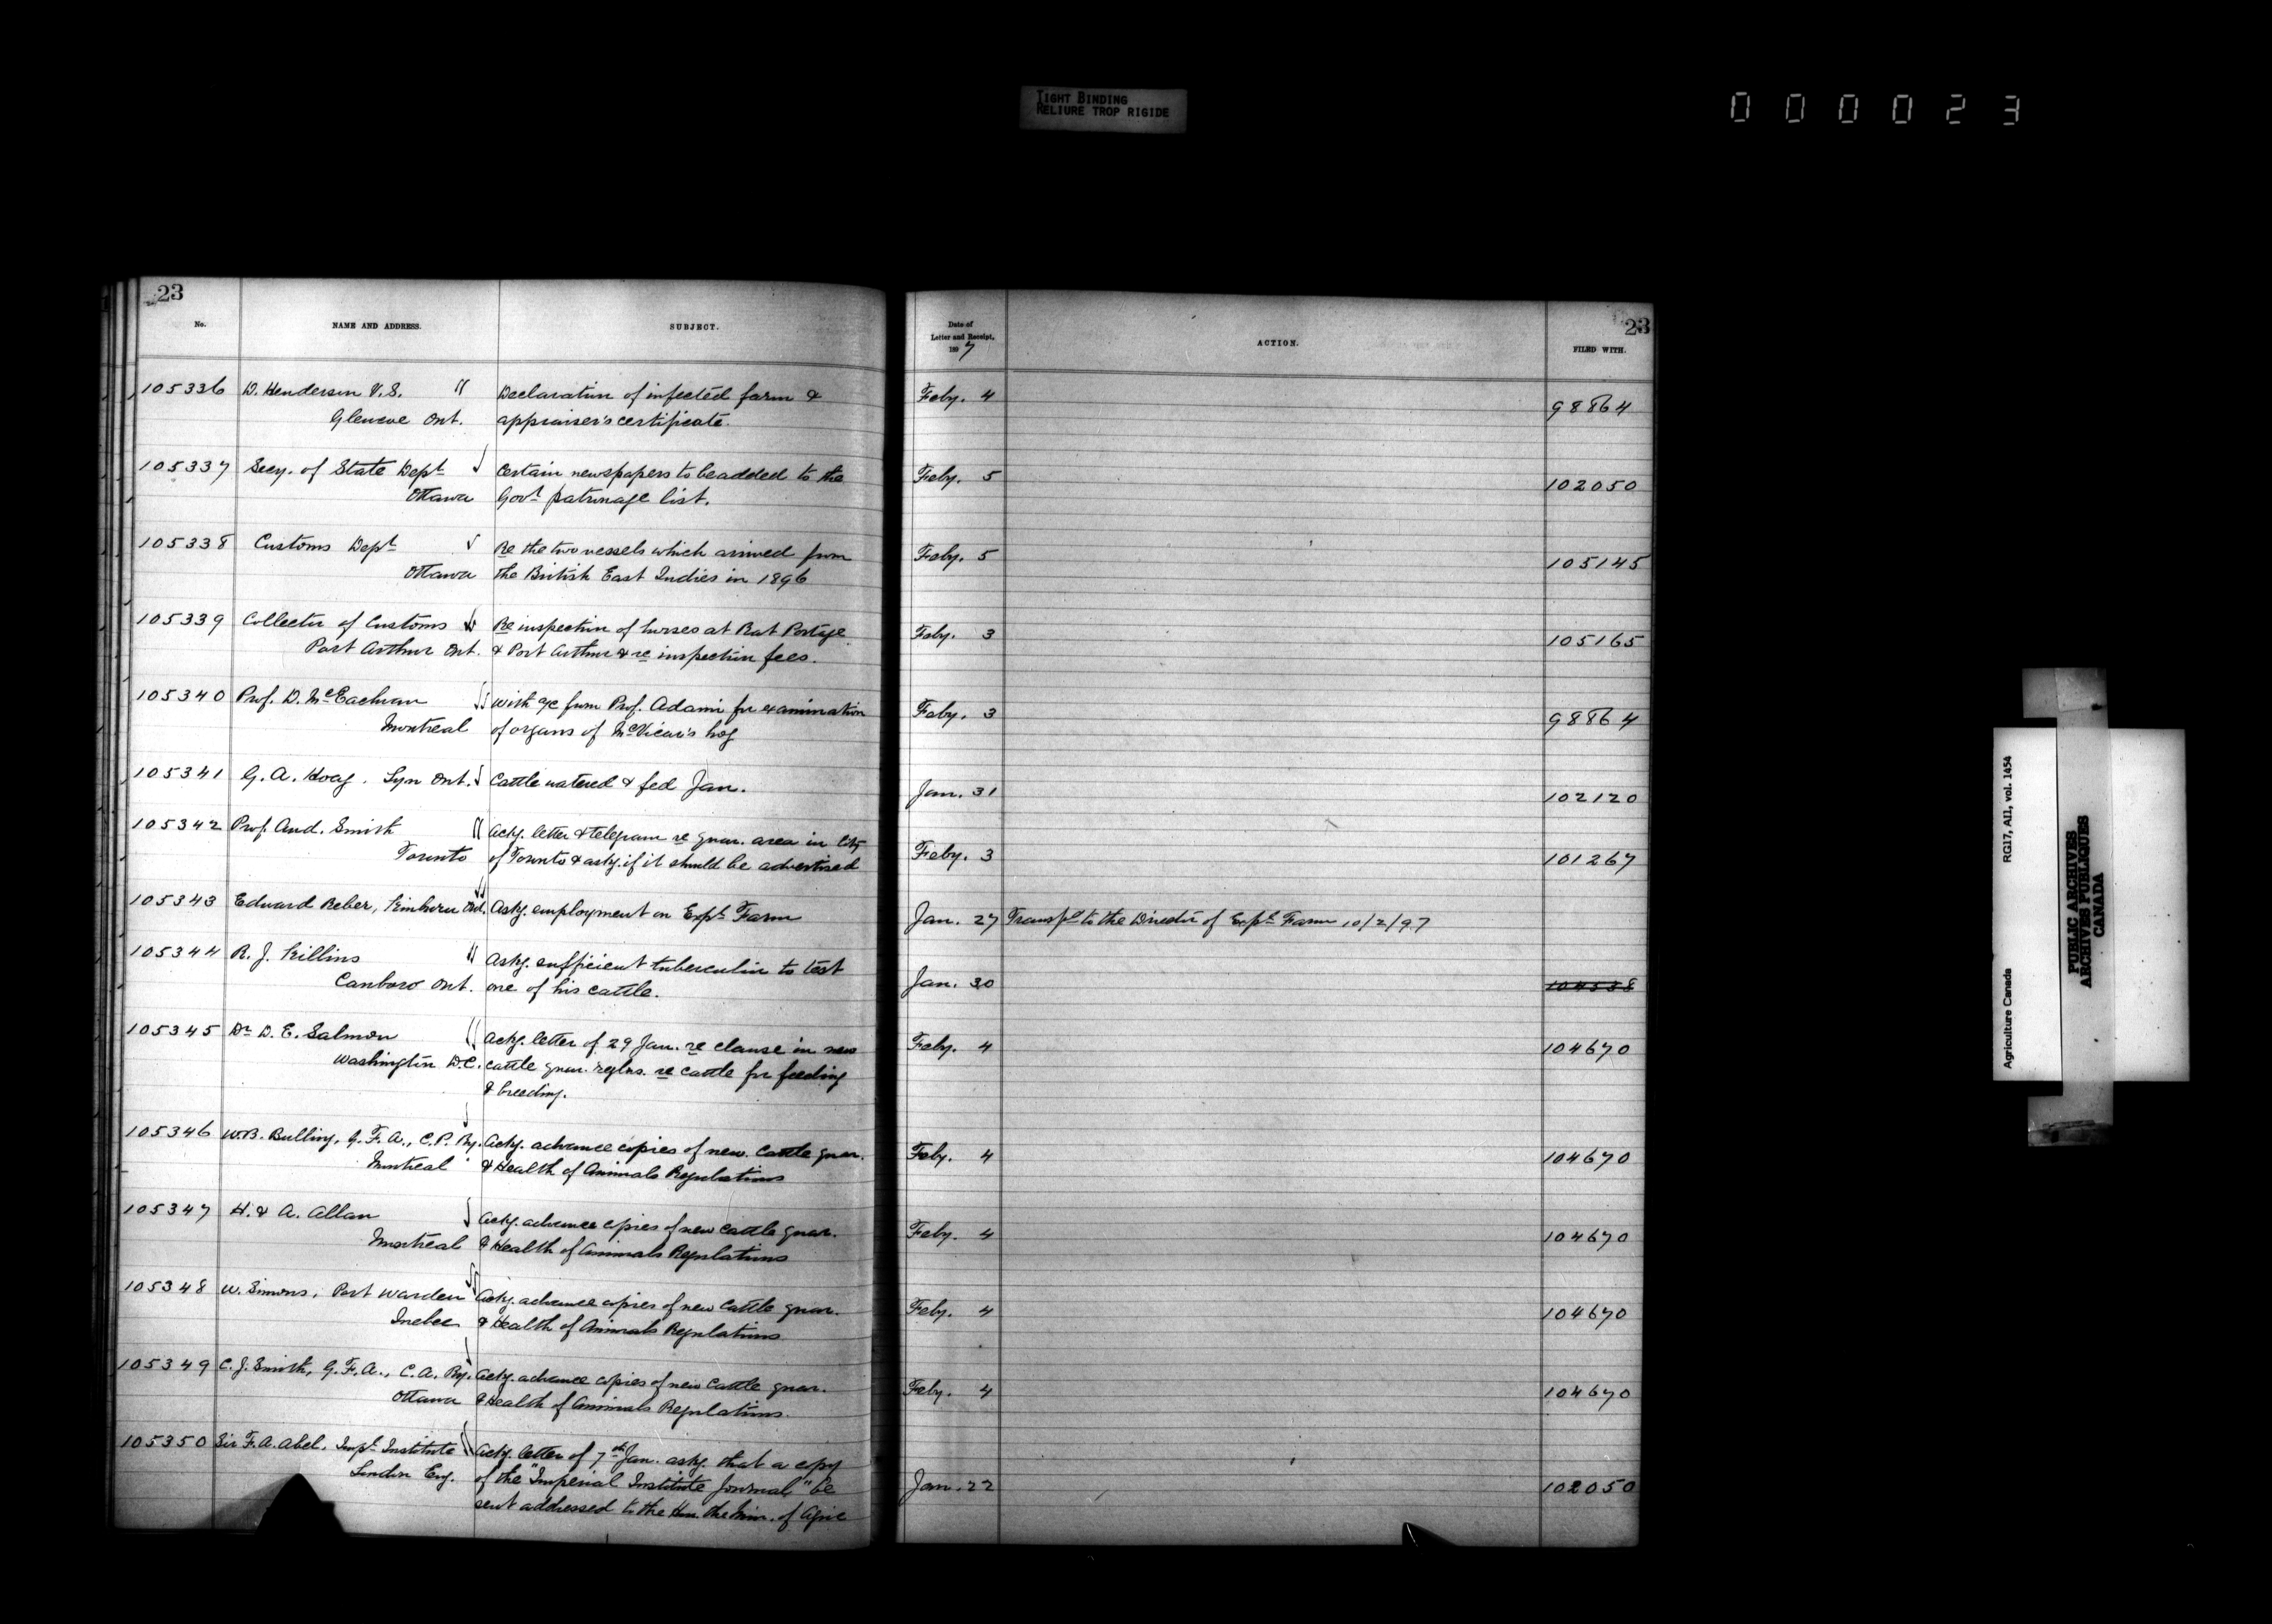 TIGHT BINDING
RELIURE TROP RIGIDE
000023
23
No.
NAME AND ADDRESS.
SUBJECT.
105336 D. Henderson V.S. Declaration of infected farm &
Ont. appraiser's certificate.
105337 Secy. of State Dept Certain newspapers to be added to the
Ottawa Govt patronage list.
105338 Customs Dept Re the two vessels which arrived from
Ottawa the British East Indies in 1896
105339 Collector of Customs Re inspection of horses at Rat Portage
Port Arthur Ont. & Port Arthur & re inspection fees.
105340 Prof. D. McEachran with a/c from Prof. Adami for examination
Montreal of organs of McVicar's hog
105341 G. A. Hoag. Lyn Ont. Cattle watered & fed Jan.
105342 Prof. And. Smith Ackg. letter & telegram re quar. area in City
Toronto of Toronto & askg. if it should be advertised
105343 Edward Reber, Kinburn Ont. Askg. employment on Expl Farm
105344 R. J. Killins Askg. sufficient tuberculin to test
Canboro Ont. one of his cattle.
105345 Dr D. E. Salmon Ackg. letter of 29 Jan. re clause in new
Washington D.C. cattle quar. reglns. re cattle for feeding
& breeding.
105346 W.B. Bulling, G. F. A., C. P. Ry. Ackg. advance copies of new cattle quar.
Montreal & Health of Animals Regulations
105347 H. & A. Allan Ackg. advance copies of new cattle quar.
Montreal & Health of Animals Regulations
105348 W. Simons, Port Warden Ackg. advance copies of new cattle quar.
Quebec & Health of Animals Regulations
105349 C. J. Smith, G. F. A., C. A. Ry. Ackg. advance copies of new cattle quar.
Ottawa & Health of Animals Regulations.
105350 Sir F. A. Abel, Impl Institute Ackg. letter of 7th Jan. askg. that a copy
London Eng. of the "Imperial Institute Journal" be
sent addressed to the Hon. the Min. of Agric
23
Date of
Letter and Receipt,
1897
ACTION.
FILED WITH.
Feby. 4 98864
Feby. 5 102050
Feby. 5 105145
Feby. 3 105165
Feby. 3 98864
Jan. 31 102120
Feby. 3 101267
Jan. 27 Transfd to the Director of Expl Farm 10/2/97
Jan. 30 104538
Feby. 4 104670
Feby. 4 104670
Feby. 4 104670
Feby. 4 104670
Feby. 4 104670
Jan. 22 102050
Agriculture Canada RG17, AII, vol. 1454
PUBLIC ARCHIVES
ARCHIVES PUBLIQUES
CANADA